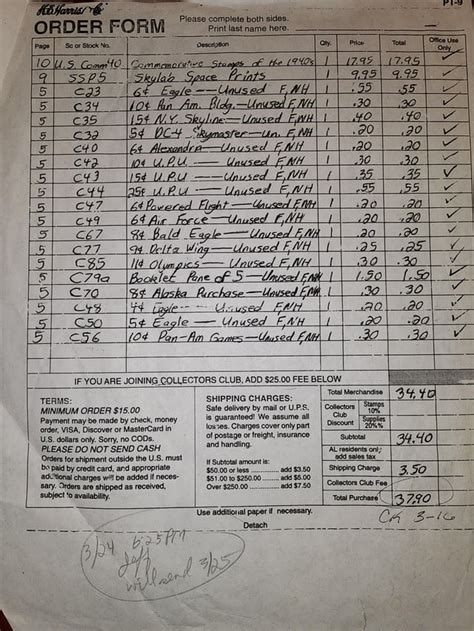 H.E. Harris & Co.
PT-9
ORDER FORM
Please complete both sides.
Print last name here.
Page Sc or Stock No. Description Qty. Price Total Office Use Only
10 U.S. Comm40 Commemorative Stamps of the 1940s 1 17.95 17.95 ✓
9 SSP5 Skylab Space Prints 1 9.95 9.95 ✓
5 C23 6¢ Eagle — Unused F,NH 1 .55 .55 ✓
5 C34 10¢ Pan Am. Bldg. — Unused F,NH 1 .30 .30 ✓
5 C35 15¢ N.Y. Skyline — Unused F,NH 1 .40 .40 ✓
5 C32 5¢ DC-4 Skymaster — Un. F,NH 1 .20 .20 ✓
5 C40 6¢ Alexandria — Unused F,NH 1 .20 .20 ✓
5 C42 10¢ U.P.U — Unused F,NH 1 .30 .30 ✓
5 C43 15¢ U.P.U — Unused F,NH 1 .35 .35 ✓
5 C44 25¢ U.P.U — Unused F,NH 1 .55 .55 ✓
5 C47 6¢ Powered Flight — Unused F,NH 1 .20 .20 ✓
5 C49 6¢ Air Force — Unused F,NH 1 .20 .20 ✓
5 C67 8¢ Bald Eagle — Unused F,NH 1 .20 .20 ✓
5 C77 9¢ Delta Wing — Unused F,NH 1 .25 .25 ✓
5 C85 11¢ Olympics — Unused F,NH 1 .30 .30 ✓
5 C79a Booklet Pane of 5 — Unused F,NH 1 1.50 1.50 ✓
5 C70 8¢ Alaska Purchase — Unused F,NH 1 .30 .30 ✓
5 C48 4¢ Eagle — Unused F,NH 1 .20 .20 ✓
5 C50 5¢ Eagle — Unused F,NH 1 .20 .20 ✓
5 C56 10¢ Pan-Am Games — Unused F,NH 1 .30 .30 ✓
IF YOU ARE JOINING COLLECTORS CLUB, ADD $25.00 FEE BELOW
TERMS:
MINIMUM ORDER $15.00
Payment may be made by check, money
order, VISA, Discover or MasterCard in
U.S. dollars only. Sorry, no CODs.
PLEASE DO NOT SEND CASH
Orders for shipment outside the U.S. must
be paid by credit card, and appropriate
additional charges will be added if neces-
sary. Orders are shipped as received,
subject to availability.
SHIPPING CHARGES:
Safe delivery by mail or U.P.S.
is guaranteed! We assume all
losses. Charges cover only part
of postage or freight, insurance
and handling.
If Subtotal is amount is:
$50.00 or less ........ add $3.50
$51.00 to $250.00 ..... add $5.50
Over $250.00 ......... add $7.50
Total Merchandise 34.40
Collectors Club Discount Stamps 10%
Supplies 20%%
Subtotal 34.40
AL residents only; add sales tax
Shipping Charge 3.50
Collectors Club Fee
Total Purchase 37.90
Use additional paper if necessary.
Detach
CK 3-16
3/24 6:25 PM
Jeff
will send 3/25